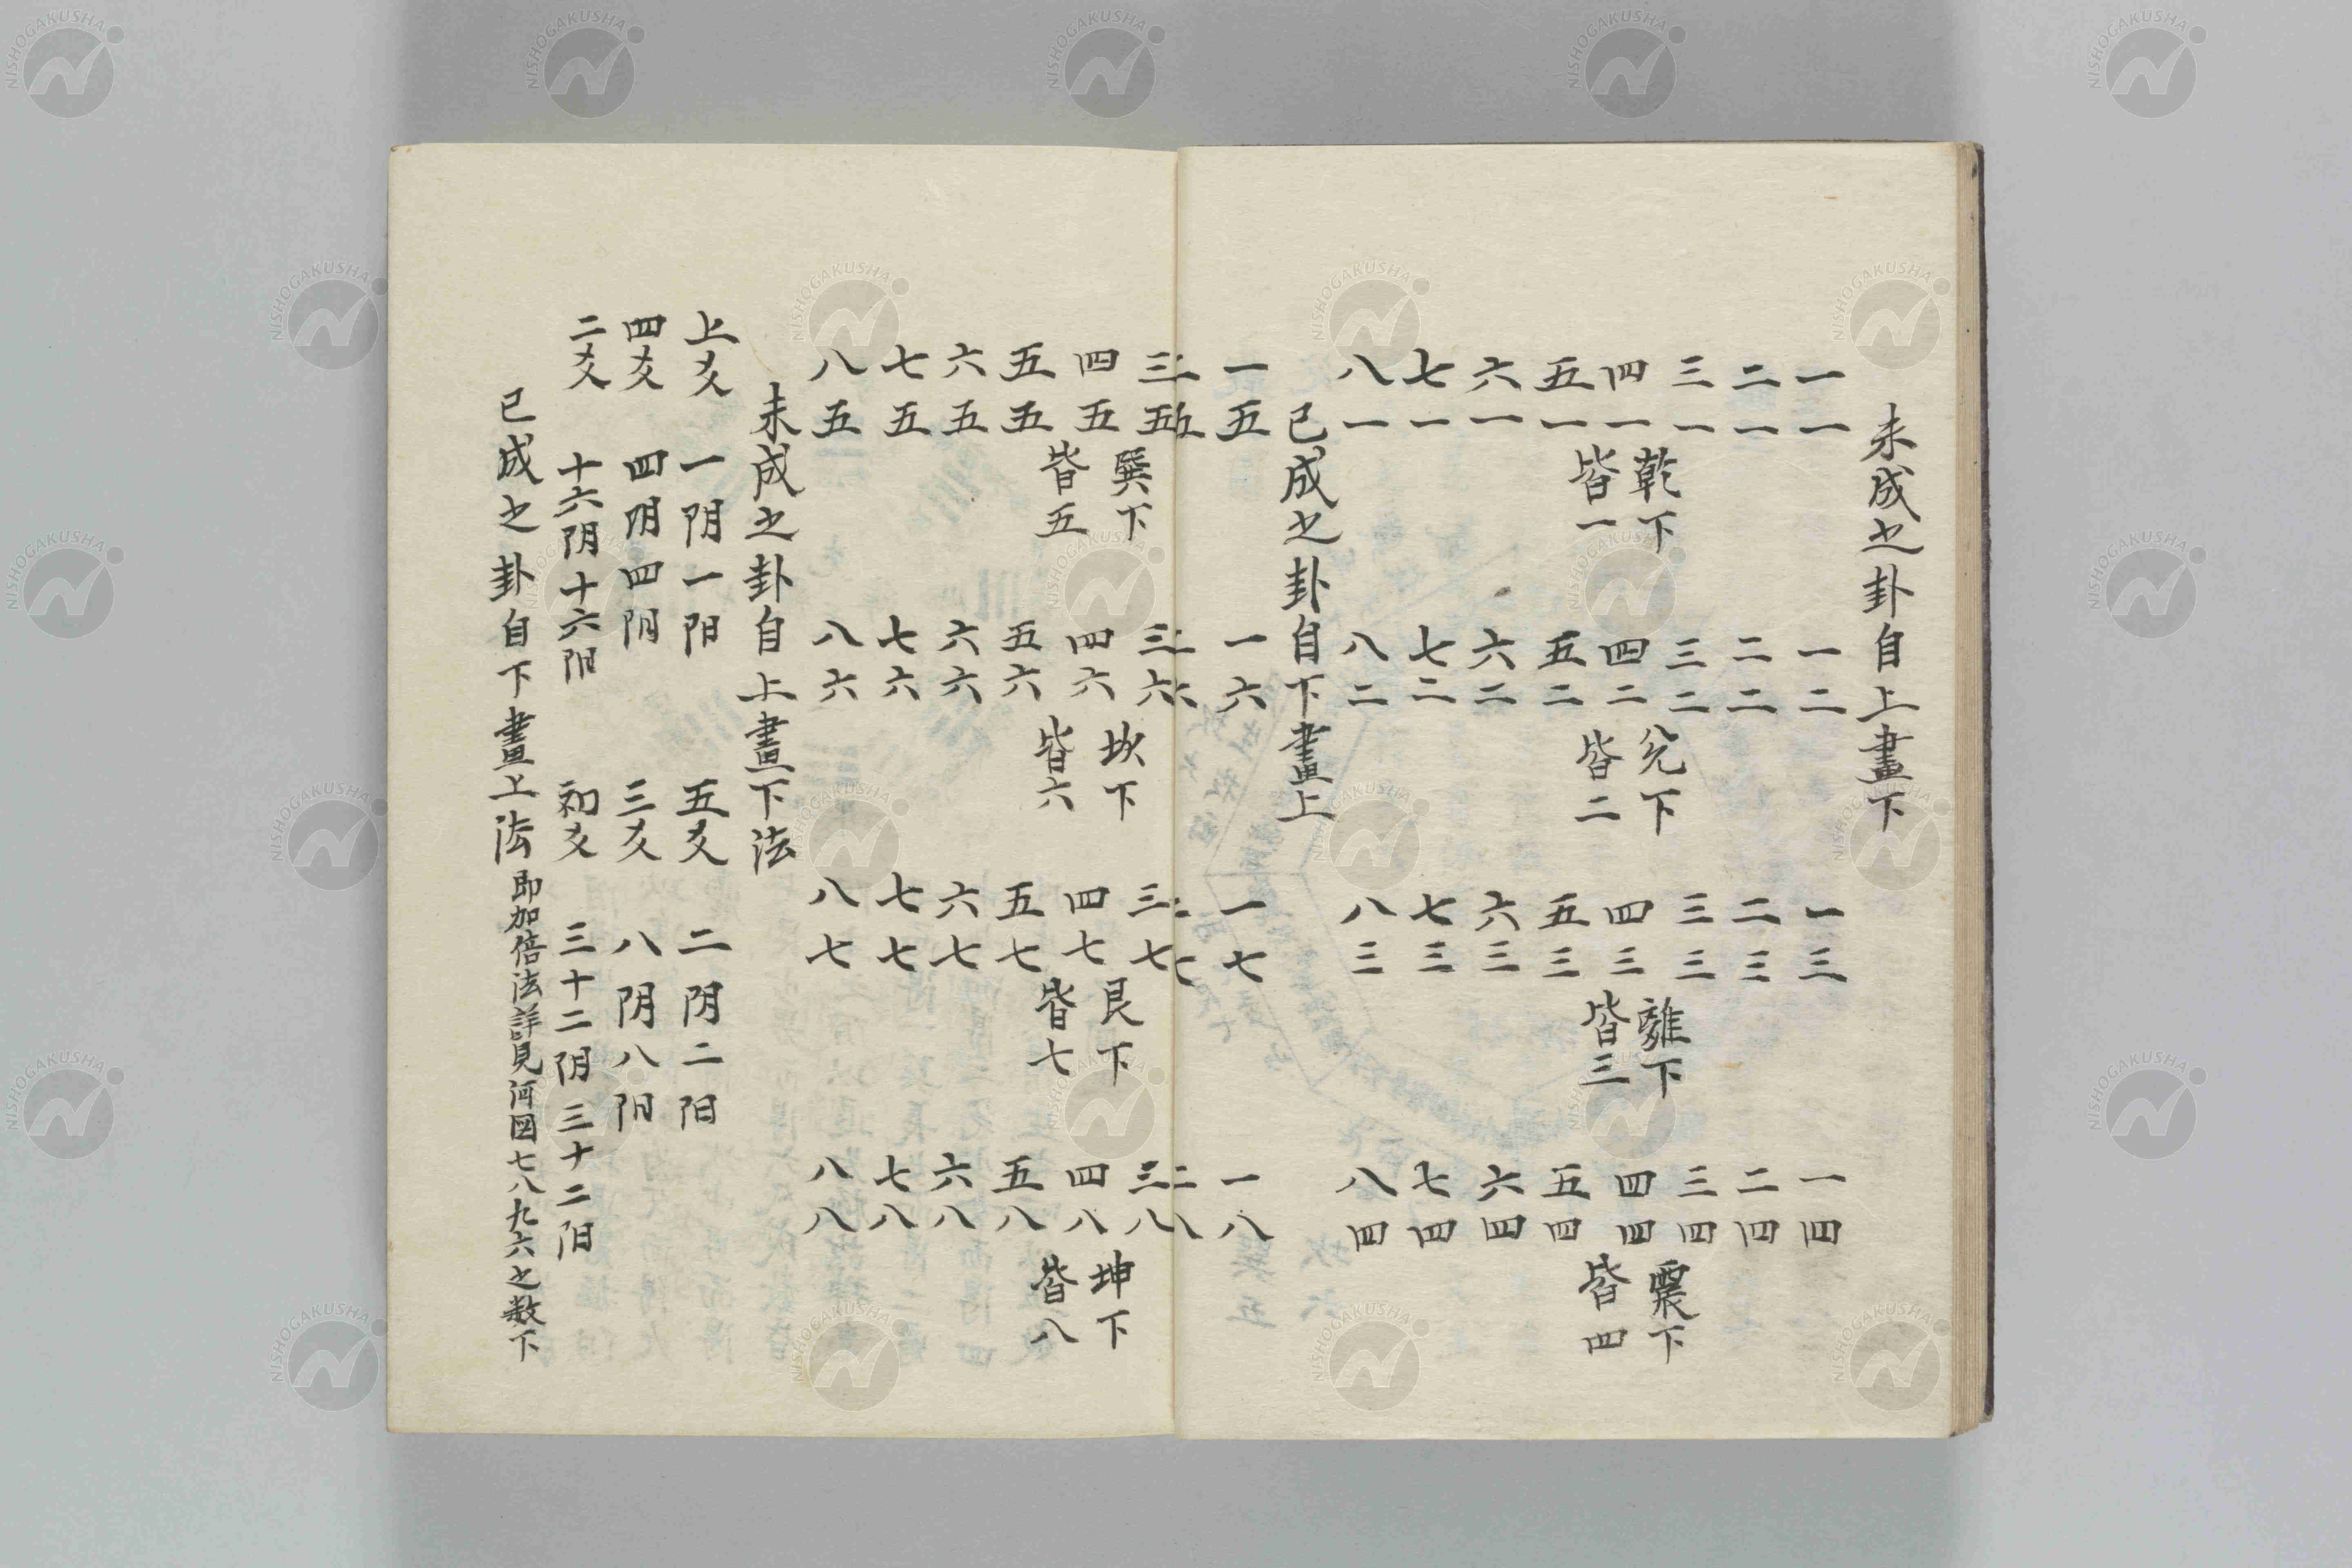 未成之卦自上畫下
一一　一二　一三　一四
二一　二二　二三　二四
三一　三二　三三　三四
四一　乾下皆一　四二　兌下皆二　四三　離下皆三　四四　震下皆四
五一　五二　五三　五四
六一　六二　六三　六四
七一　七二　七三　七四
八一　八二　八三　八四
已成之卦自下畫上
一五　一六　一七　一八
二五　二六　二七　二八
三五　三六　三七　三八
四五　巽下皆五　四六　坎下皆六　四七　艮下皆七　四八　坤下皆八
五五　五六　五七　五八
六五　六六　六七　六八
七五　七六　七七　七八
八五　八六　八七　八八
未成之卦自上畫下法
上爻　一阴一阳　五爻　二阴二阳
四爻　四阴四阳　三爻　八阴八阳
二爻　十六阴十六阳　初爻　三十二阴三十二阳
已成之卦自下畫上法　即加倍法詳見河図七八九六之数下
NISHOGAKUSHA